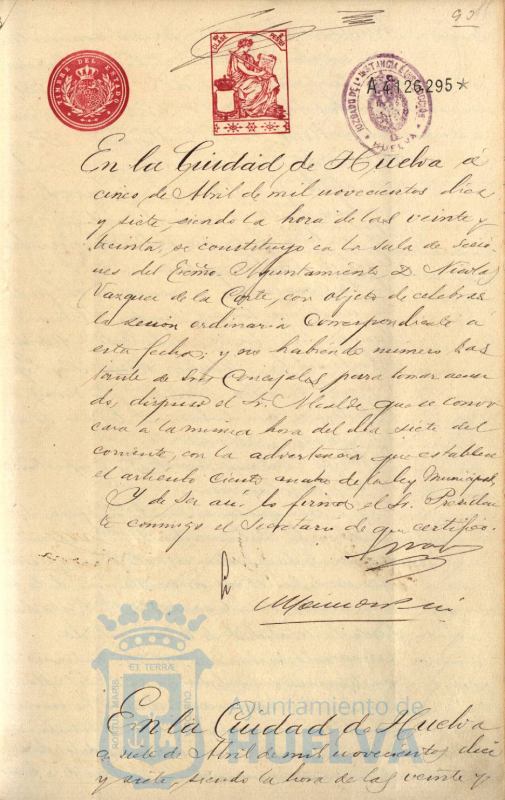 90
TIMBRE DEL ESTADO
CLASE
JUZGADO DE 1ª INSTANCIA E INSTRUCCION
HUELVA
A.4126.295*
En la Ciudad de Huelva á
cinco de Abril de mil novecientos diez
y siete, siendo la hora de las veinte y
treinta, se constituyó en la sala de sesio-
nes del Excmo. Ayuntamiento D. Nicolas
Vazquez de la Corte, con objeto de celebrar
la sesion ordinaria correspondiente á
esta fecha; y no habiendo numero bas
tante de Sres Concejales para tomar acuer
do, dispuso el Sr. Alcalde que se convo
cara a la misma hora del dia siete del
corriente, con la advertencia que establece
el articulo ciento cuatro de la ley Municipal.
Y de ser asi, lo firma el Sr. Presiden
te conmigo el Secretario de que certifico.
PORTUS MARIS ET TERRÆ CUSTODIA
Ayuntamiento de
HUELVA
En la Ciudad de Huelva
a siete de Abril de mil novecientos diez
y siete, siendo la hora de las veinte y